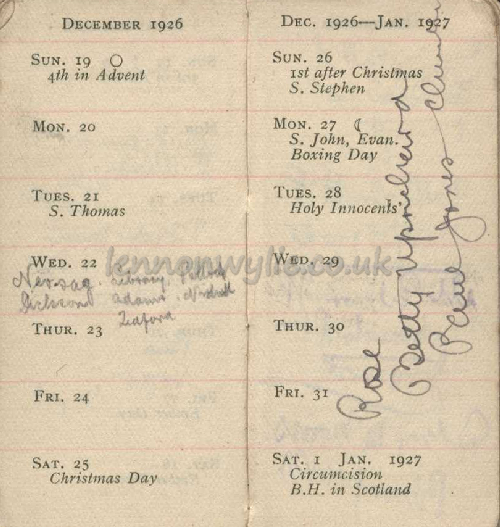 December 1926
Sun. 19
4th in Advent
Mon. 20
Tues. 21
S. Thomas
Wed. 22
Library
Adams
Thur. 23
Fri. 24
Sat. 25
Christmas Day
Dec. 1926—Jan. 1927
Sun. 26
1st after Christmas
S. Stephen
Mon. 27
S. John, Evan.
Boxing Day
Tues. 28
Holy Innocents
Wed. 29
Thur. 30
Fri. 31
Sat. 1 Jan. 1927
Circumcision
B.H. in Scotland
Rose
Betty
Jones
lennonwylie.co.uk